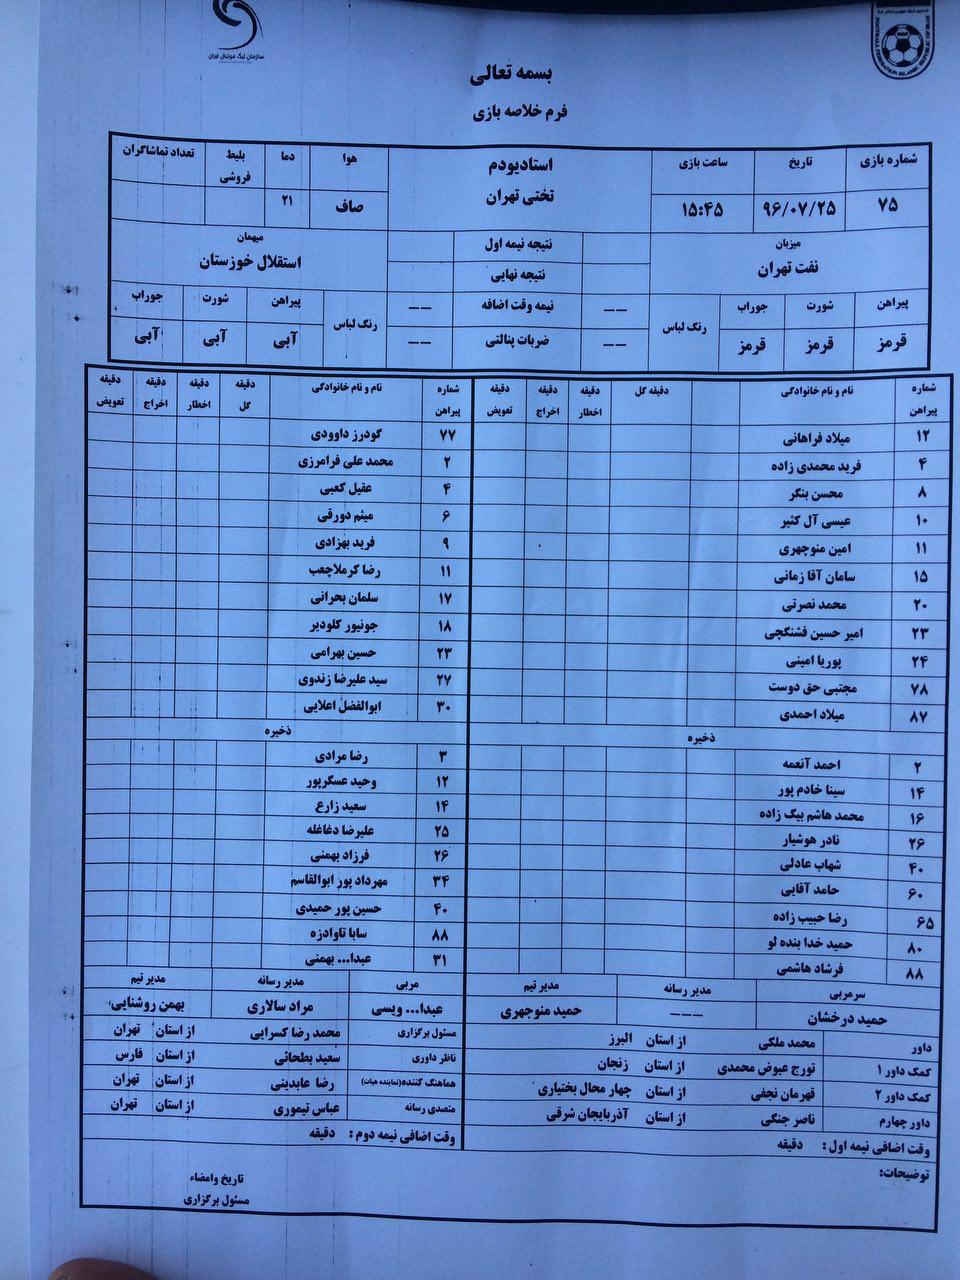 سازمان لیگ فوتبال ایران
FOOTBALL FEDERATION ISLAMIC REPUBLIC OF IRAN
بسمه تعالی
فرم خلاصه بازی
شماره بازی تاریخ ساعت بازی استادیودم هوا دما بلیط فروشی تعداد تماشاگران
۷۵ ۹۶/۰۷/۲۵ ۱۵:۴۵ تختی تهران صاف ۲۱
میزبان نتیجه نیمه اول میهمان
نفت تهران نتیجه نهایی استقلال خوزستان
پیراهن شورت جوراب رنگ لباس -- نیمه وقت اضافه -- رنگ لباس پیراهن شورت جوراب
قرمز قرمز قرمز -- ضربات پنالتی -- آبی آبی آبی
شماره پیراهن نام و نام خانوادگی دقیقه گل دقیقه اخطار دقیقه اخراج دقیقه تعویض شماره پیراهن نام و نام خانوادگی دقیقه گل دقیقه اخطار دقیقه اخراج دقیقه تعویض
۱۲ میلاد فراهانی ۷۷ گودرز داوودی
۴ فرید محمدی زاده ۲ محمد علی فرامرزی
۸ محسن بنگر ۴ عقیل کعبی
۱۰ عیسی آل کثیر ۶ میثم دورقی
۱۱ امین منوچهری ۹ فرید بهزادی
۱۵ سامان آقا زمانی ۱۱ رضا کرملاچعب
۲۰ محمد نصرتی ۱۷ سلمان بحرانی
۲۳ امیر حسین فشنگچی ۱۸ جونیور کلودیر
۲۴ پوریا امینی ۲۳ حسین بهرامی
۷۸ مجتبی حق دوست ۲۷ سید علیرضا زندوی
۸۷ میلاد احمدی ۳۰ ابوالفضل اعلایی
ذخیره ذخیره
۲ احمد آنعمه ۳ رضا مرادی
۱۴ سینا خادم پور ۱۲ وحید عسگرپور
۱۶ محمد هاشم بیگ زاده ۱۴ سعید زارع
۲۶ نادر هوشیار ۲۵ علیرضا دغاغله
۴۰ شهاب عادلی ۲۶ فرزاد بهمنی
۶۰ حامد آقایی ۳۴ مهرداد پور ابوالقاسم
۶۵ رضا حبیب زاده ۴۰ حسین پور حمیدی
۸۰ حمید خدا بنده لو ۸۸ سابا تاوادزه
۸۸ فرشاد هاشمی ۳۱ عبدا... بهمنی
سرمربی مدیر رسانه مدیر تیم مربی مدیر رسانه مدیر تیم
حمید درخشان --- حمید منوجهری عبدا... ویسی مراد سالاری بهمن روشنایی
داور محمد ملکی از استان البرز مسئول برگزاری محمد رضا کسرایی از استان تهران
کمک داور ۱ تورج عیوض محمدی از استان زنجان ناظر داوری سعید بطحائی از استان فارس
کمک داور ۲ قهرمان نجفی از استان چهار محال بختیاری هماهنگ کننده(نماینده هیات) رضا عابدینی از استان تهران
داور چهارم ناصر جنگی از استان آذربایجان شرقی متصدی رسانه عباس تیموری از استان تهران
وقت اضافی نیمه اول : دقیقه وقت اضافی نیمه دوم : دقیقه
توضیحات:
تاریخ وامضاء
مسئول برگزاری